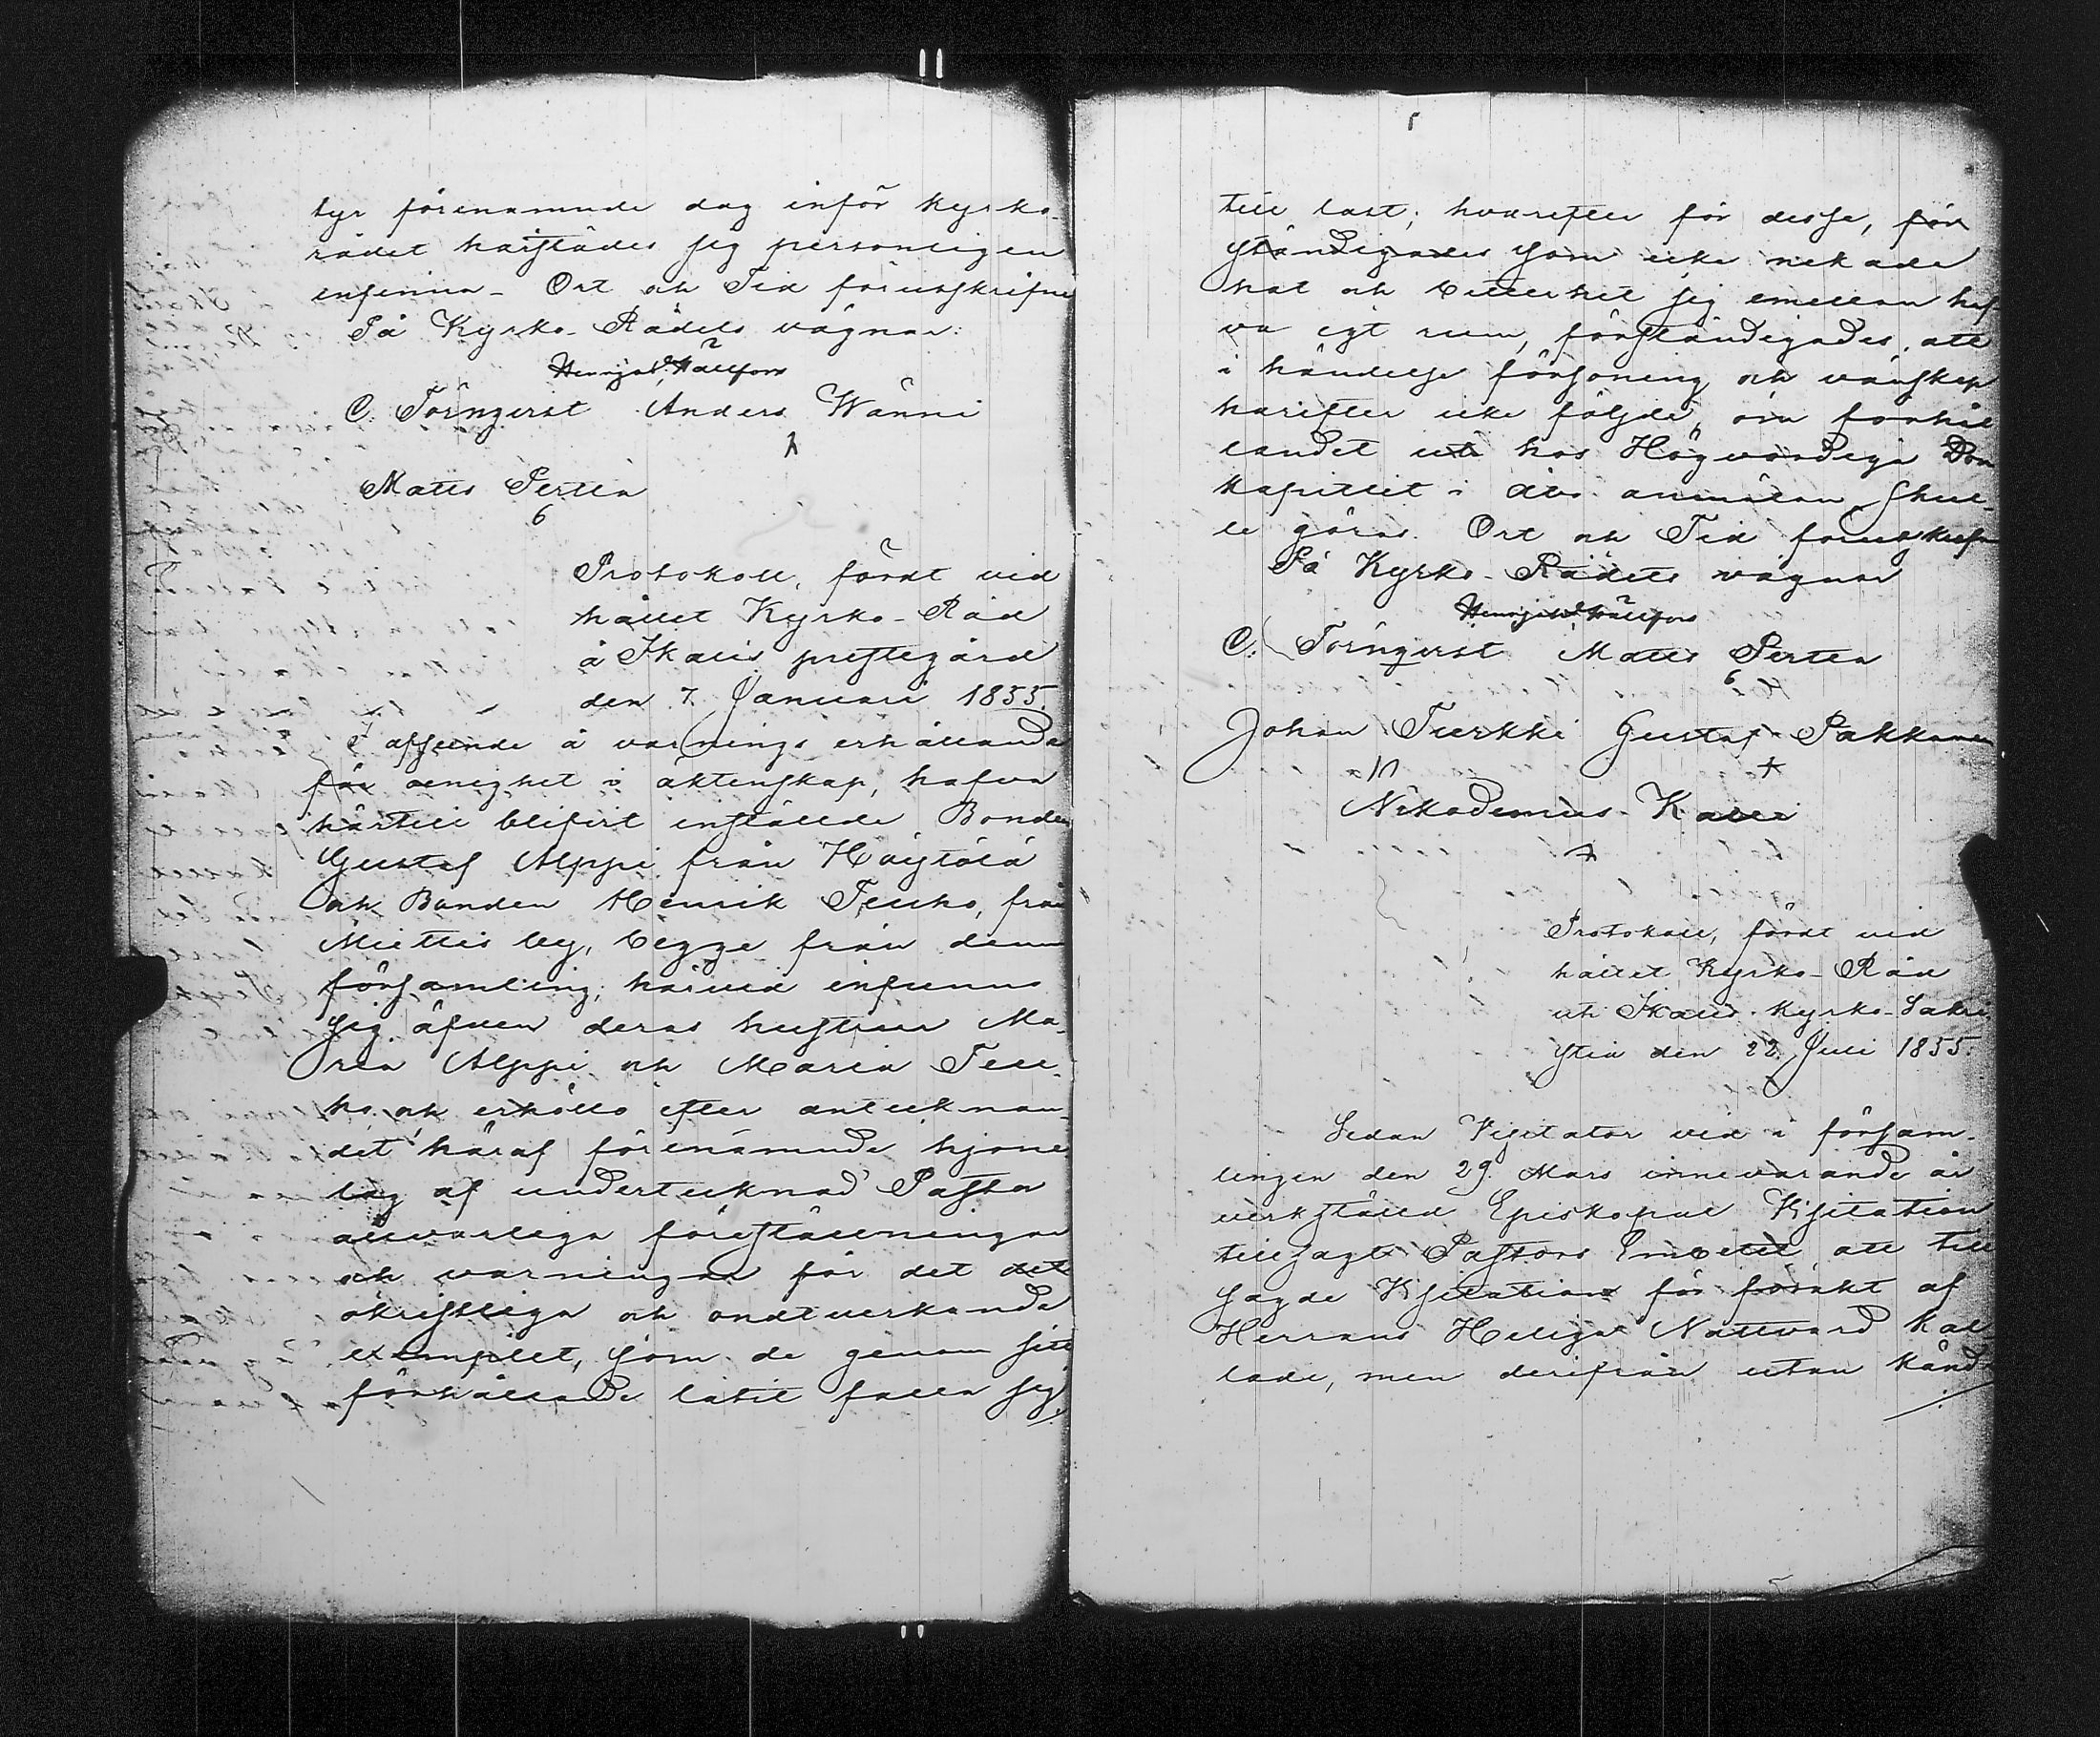 tyr förenämnde dag inför Kyrko-
rådet härstädes sig personligen
infinna. Ort och Tid förutskrifne
På Kyrko-Rådets vägnar:
C. Törnqvist Anders Wänni
Matts Pertta
6
Protokoll, fördt vid
hållet Kyrko-Råd
å Ikalis prestegård
den 7. Januari 1855.
I afseende å varnings erhållande
för oenighet i äktenskap, hafva
härtill blifvit instälde Bonden
Gustaf Alppi från Höytölä
och Bonden Henrik Teuho, från
Miettis by, begge från denna
församling; härvid infunno
sig äfven deras hustrur Ma-
ria Alppi och Maria Teu-
ho och erhöllo efter antecknan-
det häraf förenämnde hjone
lag af undertecknad Pastor
allvarliga föreställningar
och varningar för det det
okristliga och ondtverkande
exemplet, som de genom sitt
förhållande låtit falla sig
till last; hvarefter för desse, för
ständigades som icke nekade
hat och bitterhet sig emellan haf-
va egt rum, förständigades, att
i händelse försoning och vänskap
härefter icke följde, om förhål
landet ut hos Högvördiga Dom
kapitlet i Åbo anmälan skul-
le göras. Ort och Tid förutskrefne
På Kyrko-Rådets vägnar
C. Törnqvist Matts Pertta
6
Johan Turkki Gustaf Pakkanen
Nikodemus Kalli
Protokoll, fördt vid
hållet Kyrko-Råd
uti Ikalis Kyrko-Sakri
stia den 22. Juli 1855.
Sedan Visitator vid i försam-
lingen den 29. Mars innevarande år
verkställd Episkopal Visitation
tillsagt Pastors Embetet att till
sagde Visitation för förakt af
Herrans Heliga Nattvard kal-
lade, men derifrån utan känd